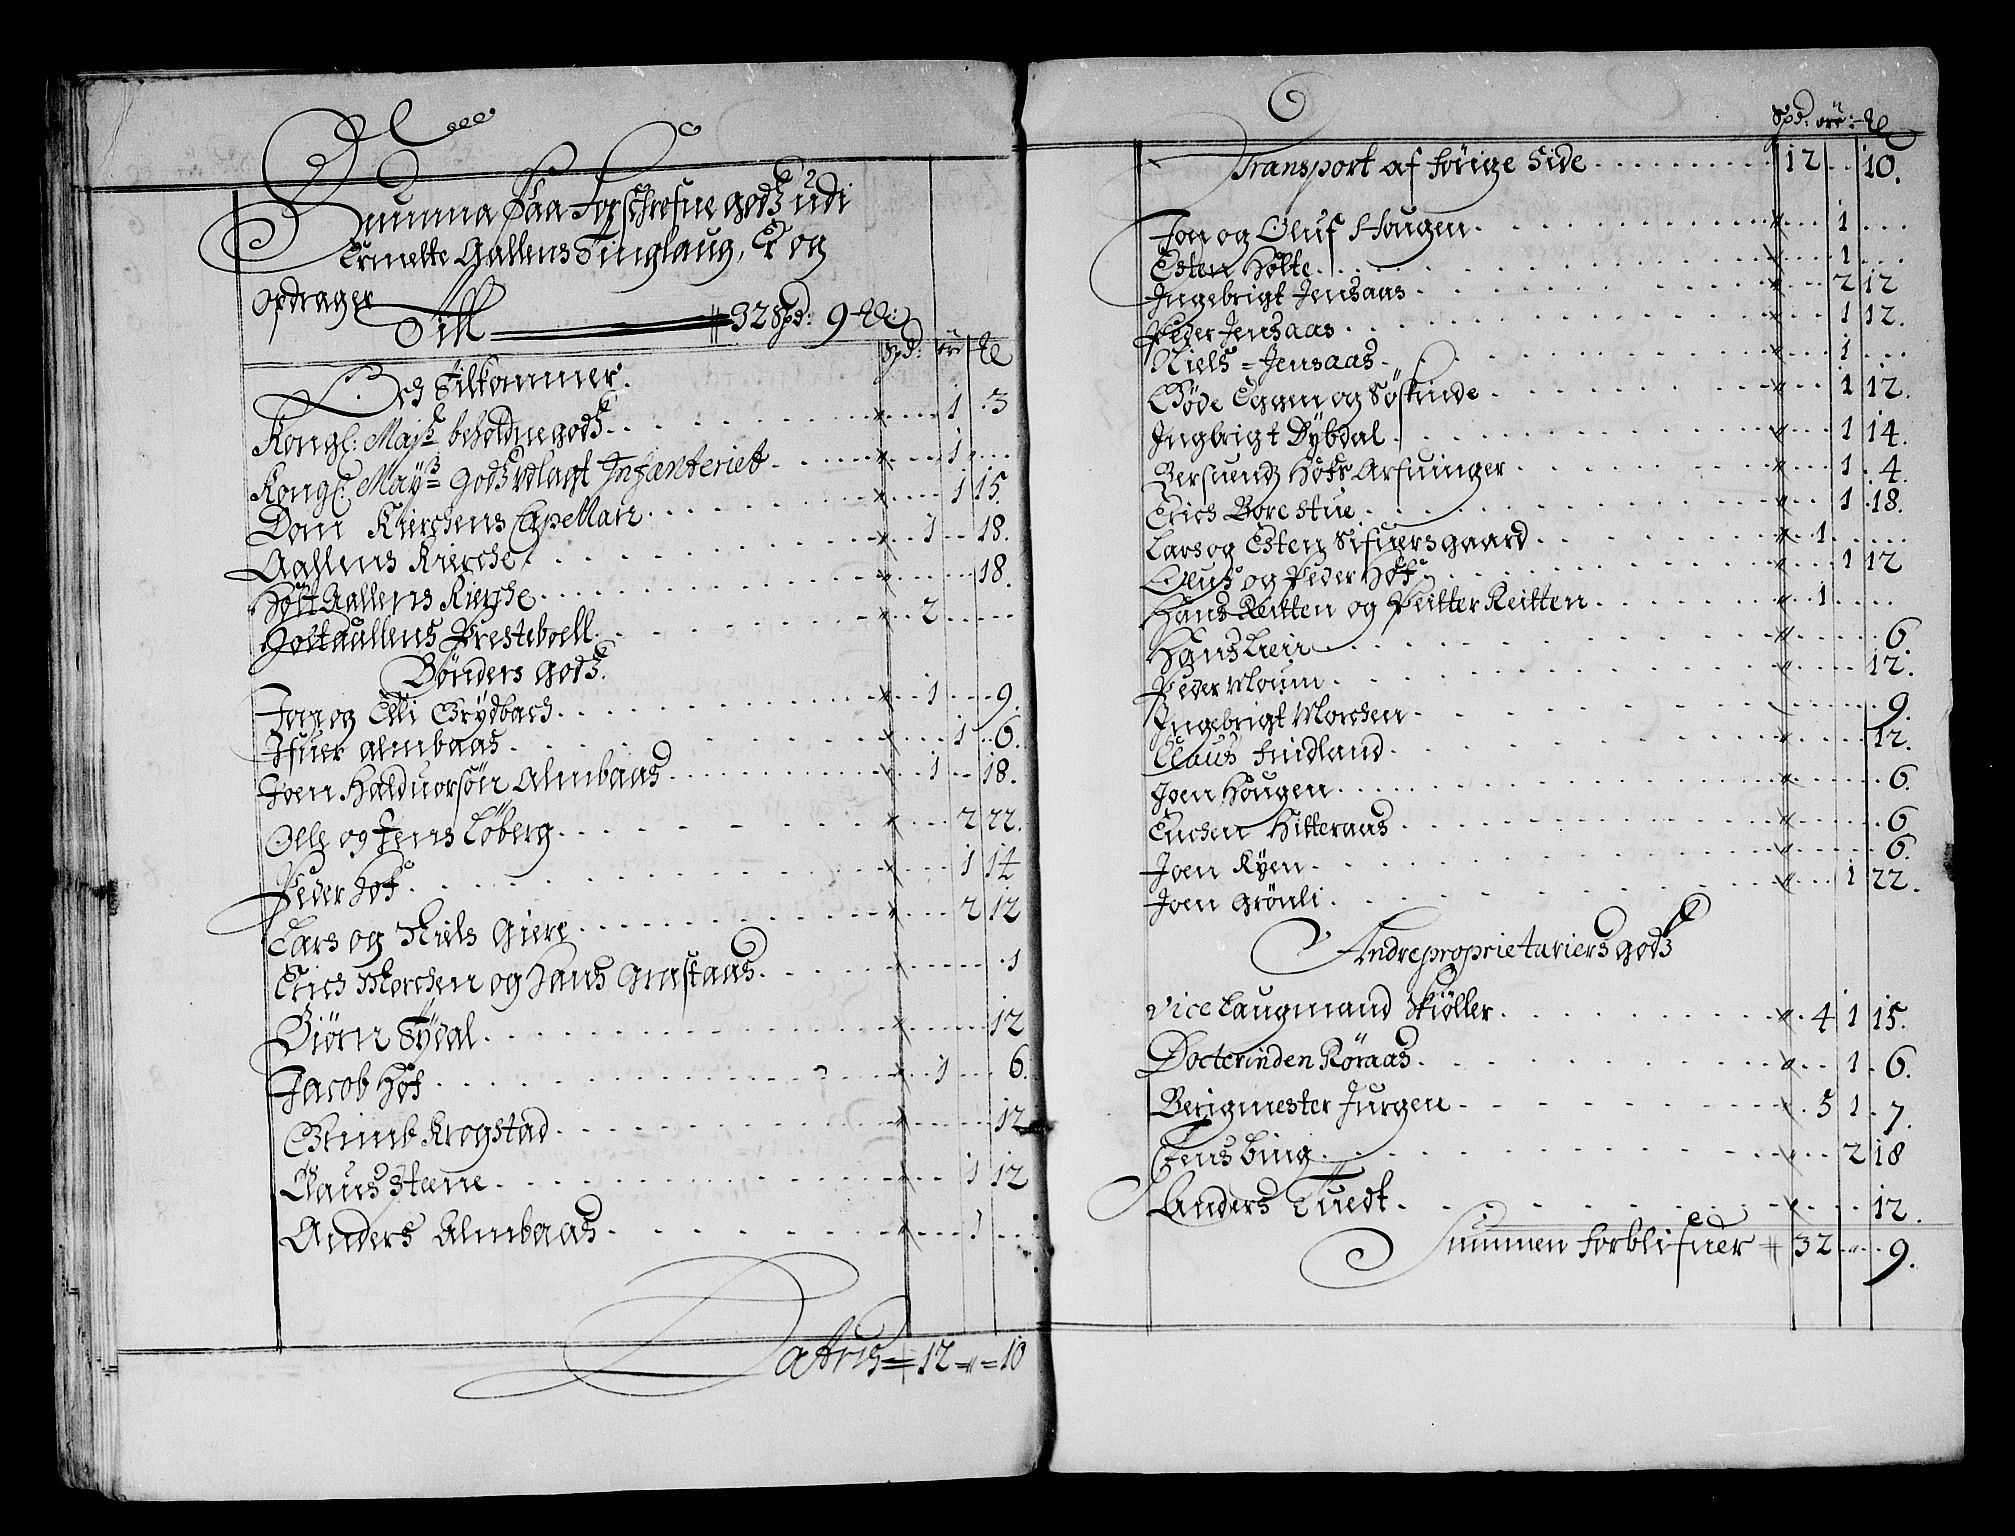 Summa Paa Forschrefne godtz udi
Ermelte Aallens Tinglaug, Er og
Opdrager
Till 32 Spd: 9 Ml:
Spd: öre Ml
Och Tilkommer.
Kongl: Majts beholdne godtz 1 . 3
Kongl: Mayts Godtz Udlagt Infanteriet 1
Dom Kierchens Capellan 1 15
Aahlens Kierche 1 18.
Holt Aallens Kierche 18.
Holtaallens Presteboell 2
Bönders godtz.
Jon og Elli Grydbach 1 9.
Ifuer Almbaas 1 6.
Joen Halduorsön Almbaas 1 18.
Olle og Jens Löberg 2 22.
Peder Hof 1 14
Lars og Niels Giere 2 12
Erich Morchen og Hans Graftaas 1
Biörn Tydal 12
Jacob Hof 1 6.
Grimb Krogstad 12
Claus Steene 1 12
Anders Almbaas 1
Latris 12 10
Spd: öre: Ml
Transport af forige Side 12 10.
Jon og Oluf Hougen 1
Esten Holte 1
Ingebrigt Jensaas 2 12
Peder Jensaas 1 12.
Niels Jensaas 1
Böde Eggen og Söskinde 1 12.
Ingbrigt Dybdal 1 14.
Bersuend Hofs Arfuinger 1 . 4.
Erich Borestue 1 18.
Lars og Esten Sifuersgaard 1
Oluf og Peder Hof 1 12
Hans Reitten og Peitter Reitten 1
Hans Lien 6.
Peder Moum 12.
Ingebrigt Morchen 9.
Claus Finidland 12.
Joen Hougen 6.
Enchen Hitteraas 6
Joen Kyen 6.
Joen Grönli 1 22.
Andre proprietariers godtz
Vice Laugmand Skiöller 4 1 15.
Docterinden Röraas 1 6.
Berigmester Jurgen 5 1 7.
Jens Bing 2 18
Anders Tuedt 12.
Summen forblifuer 32 9.